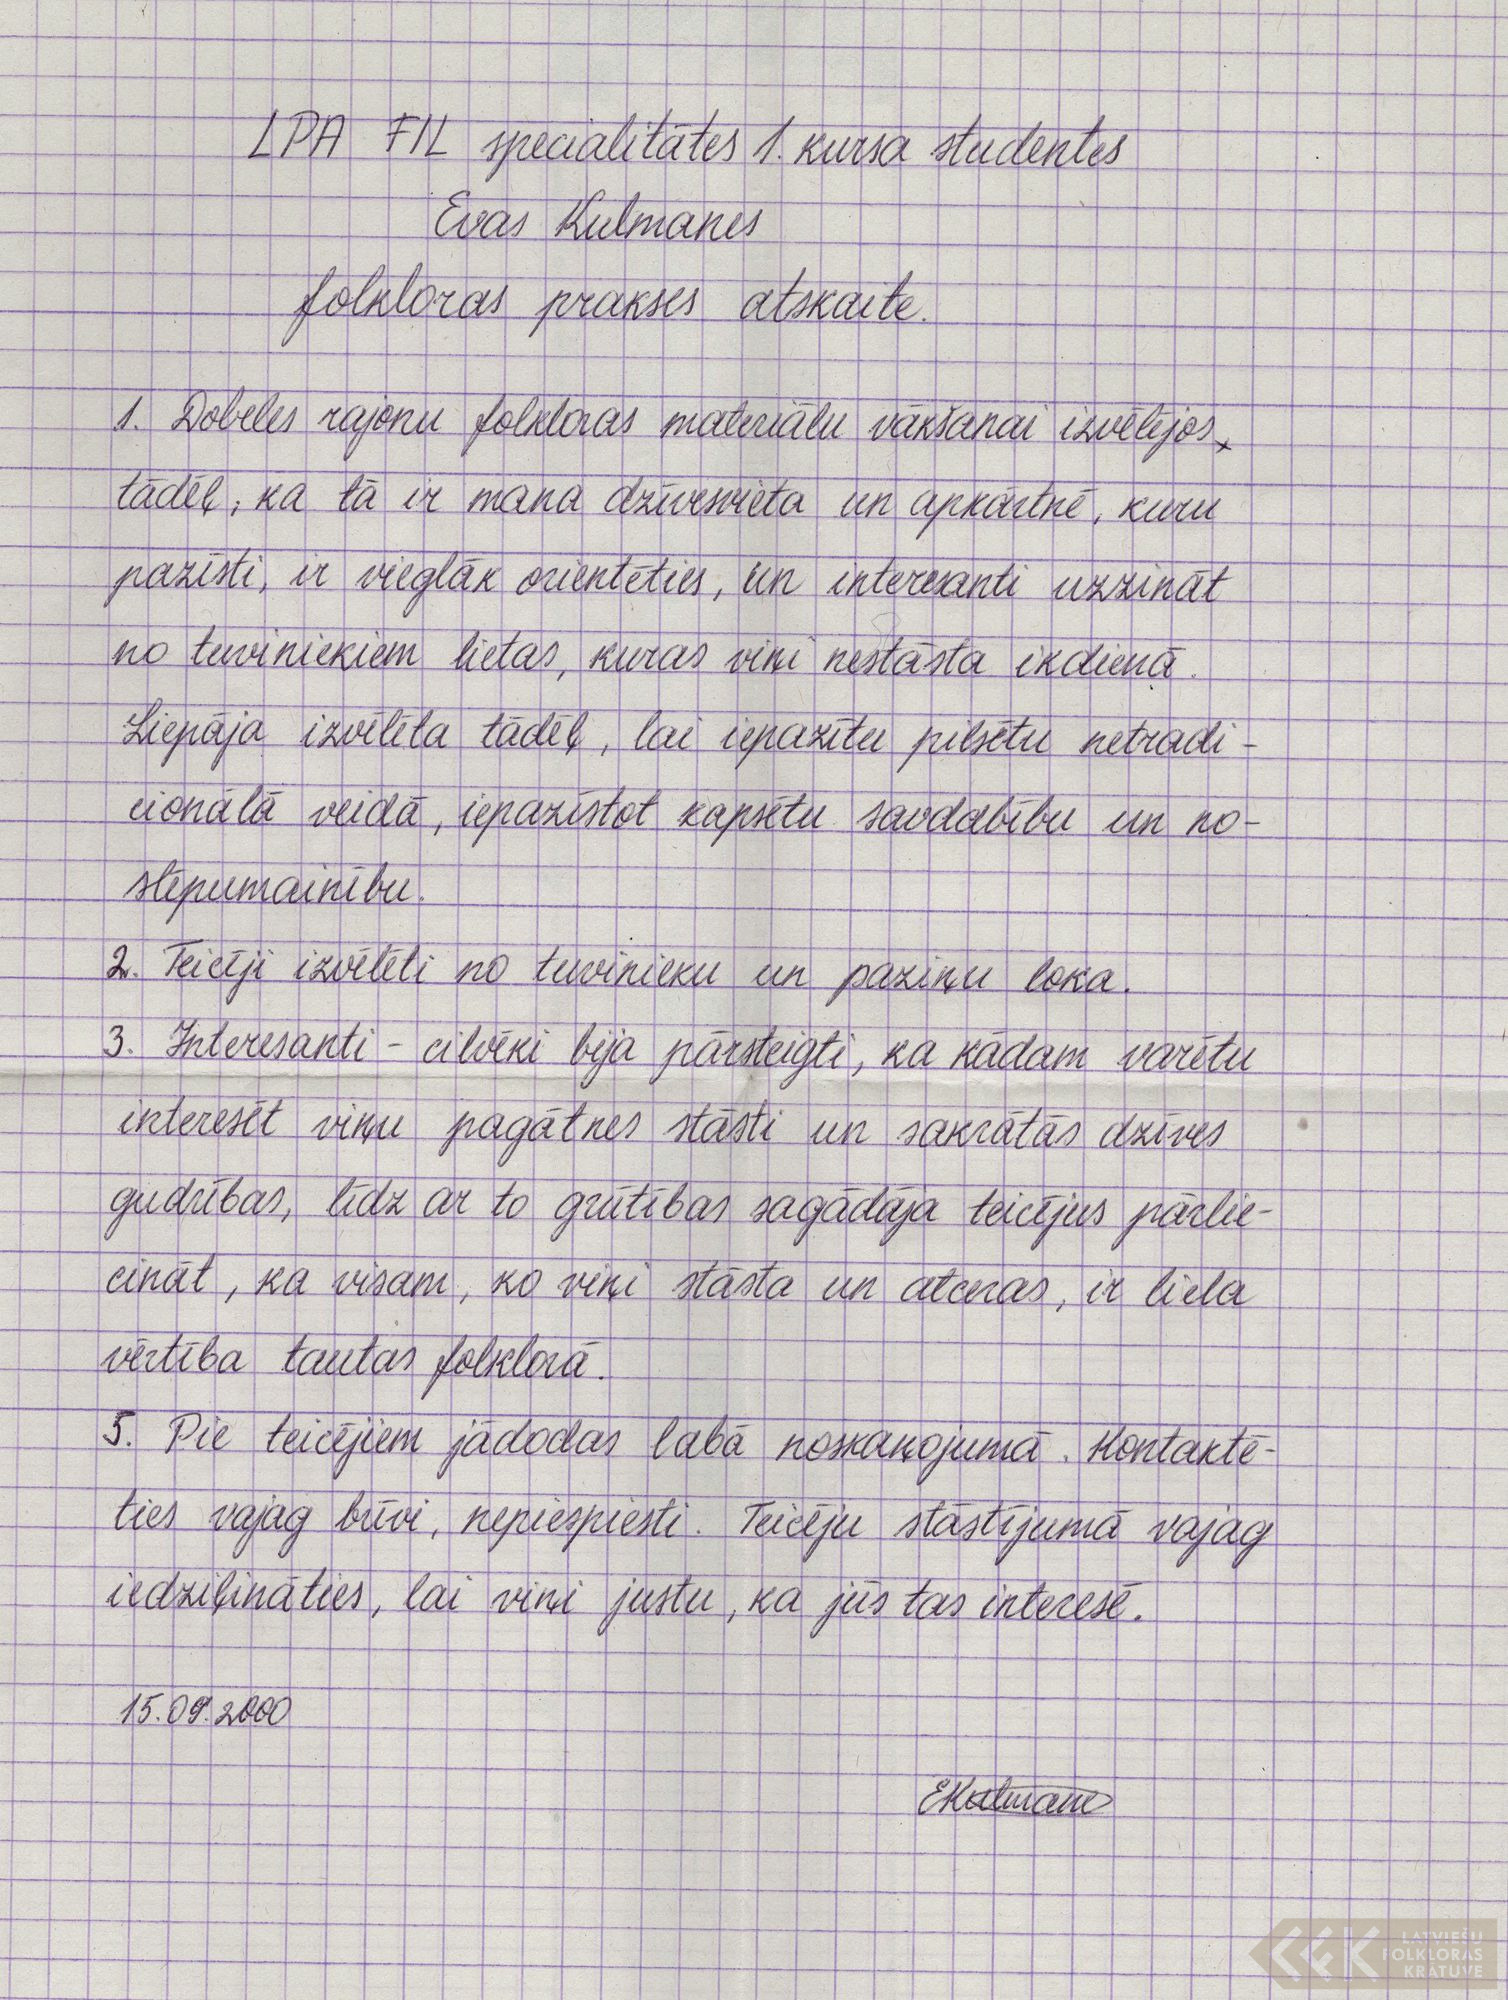 LPA FIL specialitātes 1. kursa studentes
Evas Kulmanes
folkloras prakses atskaite.
1. Dobeles rajonu folkloras materiālu vākšanai izvēlējos
tādēļ, ka tā ir mana dzīvesvieta un apkārtnē, kuru
pazīsti, ir vieglāk orientēties, un interesanti uzzināt
no tuviniekiem lietas, kuras viņi nestāsta ikdienā.
Liepāja izvēlēta tādēļ, lai iepazītu pilsētu netradi-
cionālā veidā, iepazīstot kapsētu savdabību un no-
slēpumainību.
2. Teicēji izvēlēti no tuvinieku un paziņu loka.
3. Interesanti - cilvēki bija pārsteigti, ka kādam varētu
interesēt viņu pagātnes stāsti un sakrātās dzīves
gudrības, līdz ar to grūtības sagādāja teicējus pārlie-
cināt, ka visam, ko viņi stāsta un atceras, ir liela
vērtība tautas folklorā.
5. Pie teicējiem jādodas labā noskaņojumā. Kontaktē-
ties vajag brīvi, nepiespiesti. Teicēju stāstījumā vajag
iedziļināties, lai viņi justu, ka jūs tas interesē.
15.09.2000
EKulmane
LATVIEŠU
FOLKLORAS
KRĀTUVE